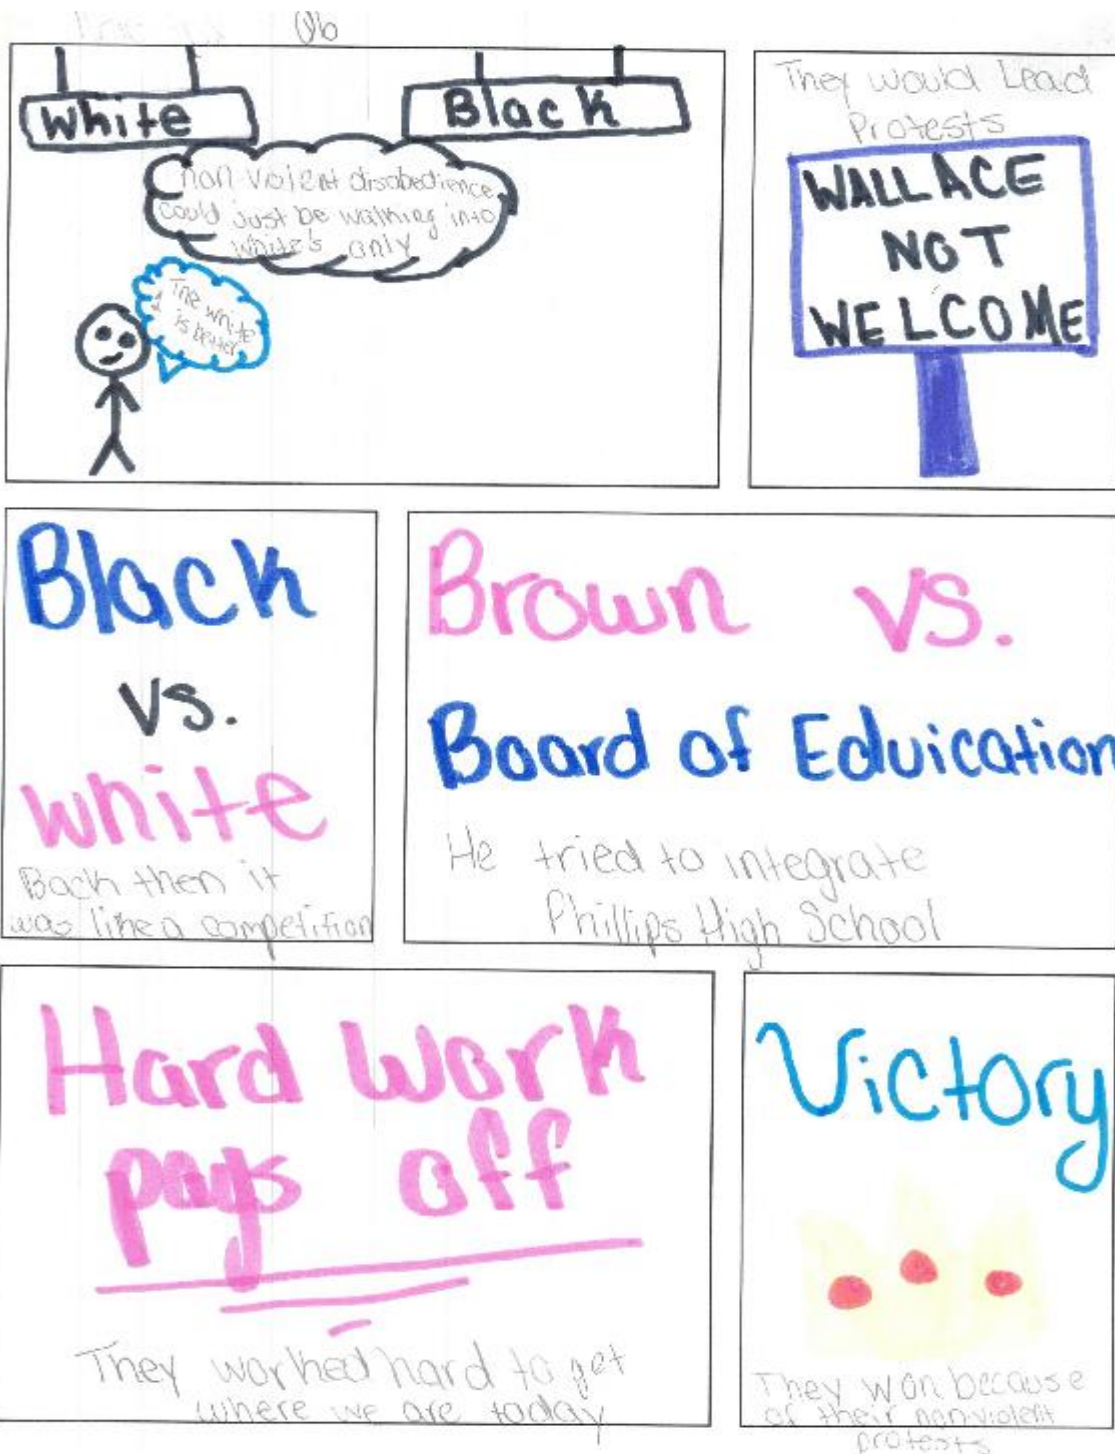 Ob
White
Black
non violent disobedience
could just be walking into
White's only
The white
is better
They would Lead
Protests
WALLACE
NOT
WELCOME
Black
vs.
white
Back then it
was like a competition
Brown vs.
Board of Eduication
He tried to integrate
Phillips High School
Hard Work
pays off
They worked hard to get
where we are today
Victory
They won because
of their nonviolent
protests